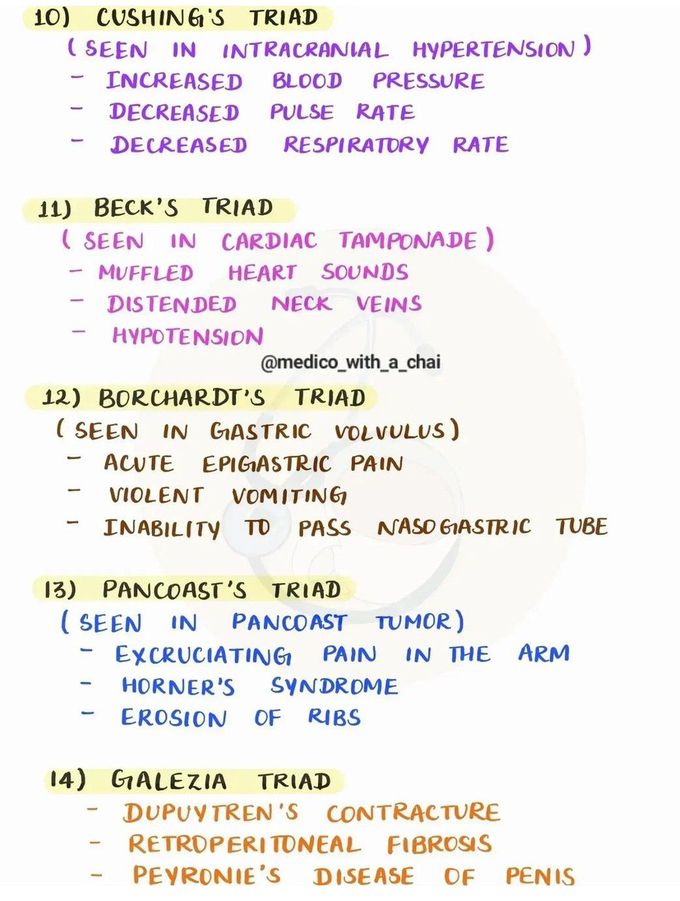 10) CUSHING'S TRIAD
(SEEN IN INTRACRANIAL HYPERTENSION)
- INCREASED BLOOD PRESSURE
- DECREASED PULSE RATE
- DECREASED RESPIRATORY RATE
11) BECK'S TRIAD
(SEEN IN CARDIAC TAMPONADE)
- MUFFLED HEART SOUNDS
- DISTENDED NECK VEINS
- HYPOTENSION
@medico_with_a_chai
12) BORCHARDT'S TRIAD
(SEEN IN GASTRIC VOLVULUS)
- ACUTE EPIGASTRIC PAIN
- VIOLENT VOMITING
- INABILITY TO PASS NASOGASTRIC TUBE
13) PANCOAST'S TRIAD
(SEEN IN PANCOAST TUMOR)
- EXCRUCIATING PAIN IN THE ARM
- HORNER'S SYNDROME
- EROSION OF RIBS
14) GALEZIA TRIAD
- DUPUYTREN'S CONTRACTURE
- RETROPERITONEAL FIBROSIS
- PEYRONIE'S DISEASE OF PENIS